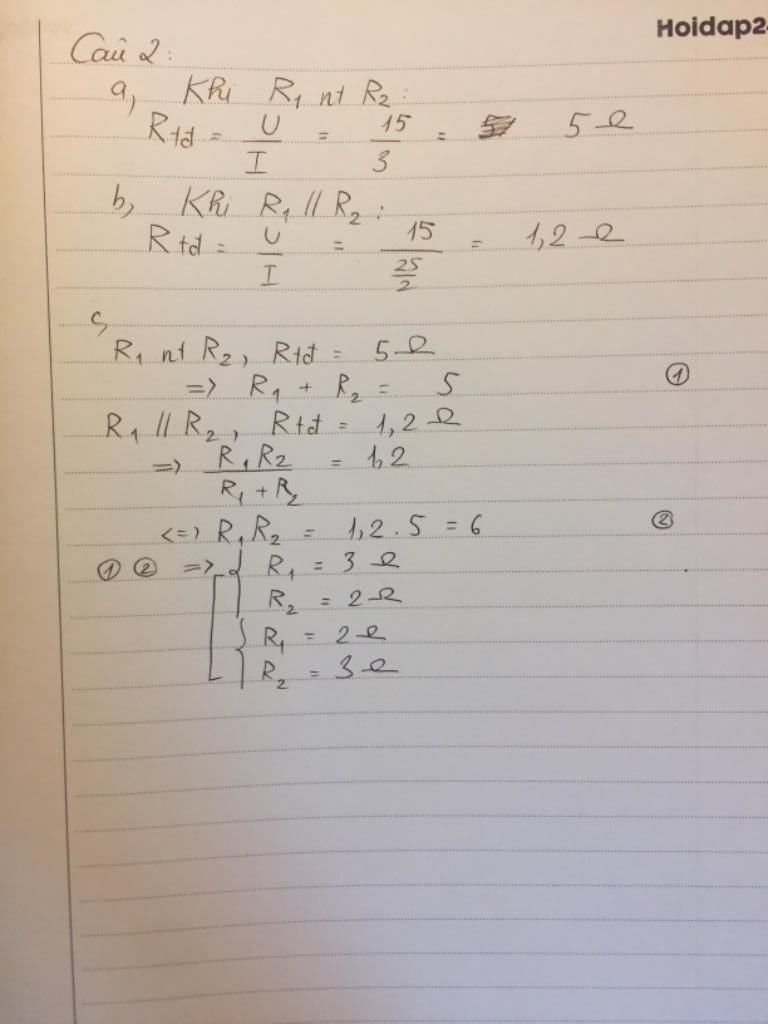 Hoidap2
Câu 2:
a, Khi R₁ nt R₂:
Rtđ = U/I = 15/3 = 5 Ω
b, Khi R₁ // R₂:
Rtđ = U/I = 15/(25/2) = 1,2 Ω
c,
R₁ nt R₂, Rtđ = 5 Ω
=> R₁ + R₂ = 5 ①
R₁ // R₂, Rtđ = 1,2 Ω
=> R₁R₂/(R₁ + R₂) = 1,2
<=> R₁R₂ = 1,2 . 5 = 6 ②
① ② => [ { R₁ = 3 Ω
R₂ = 2 Ω
{ R₁ = 2 Ω
R₂ = 3 Ω